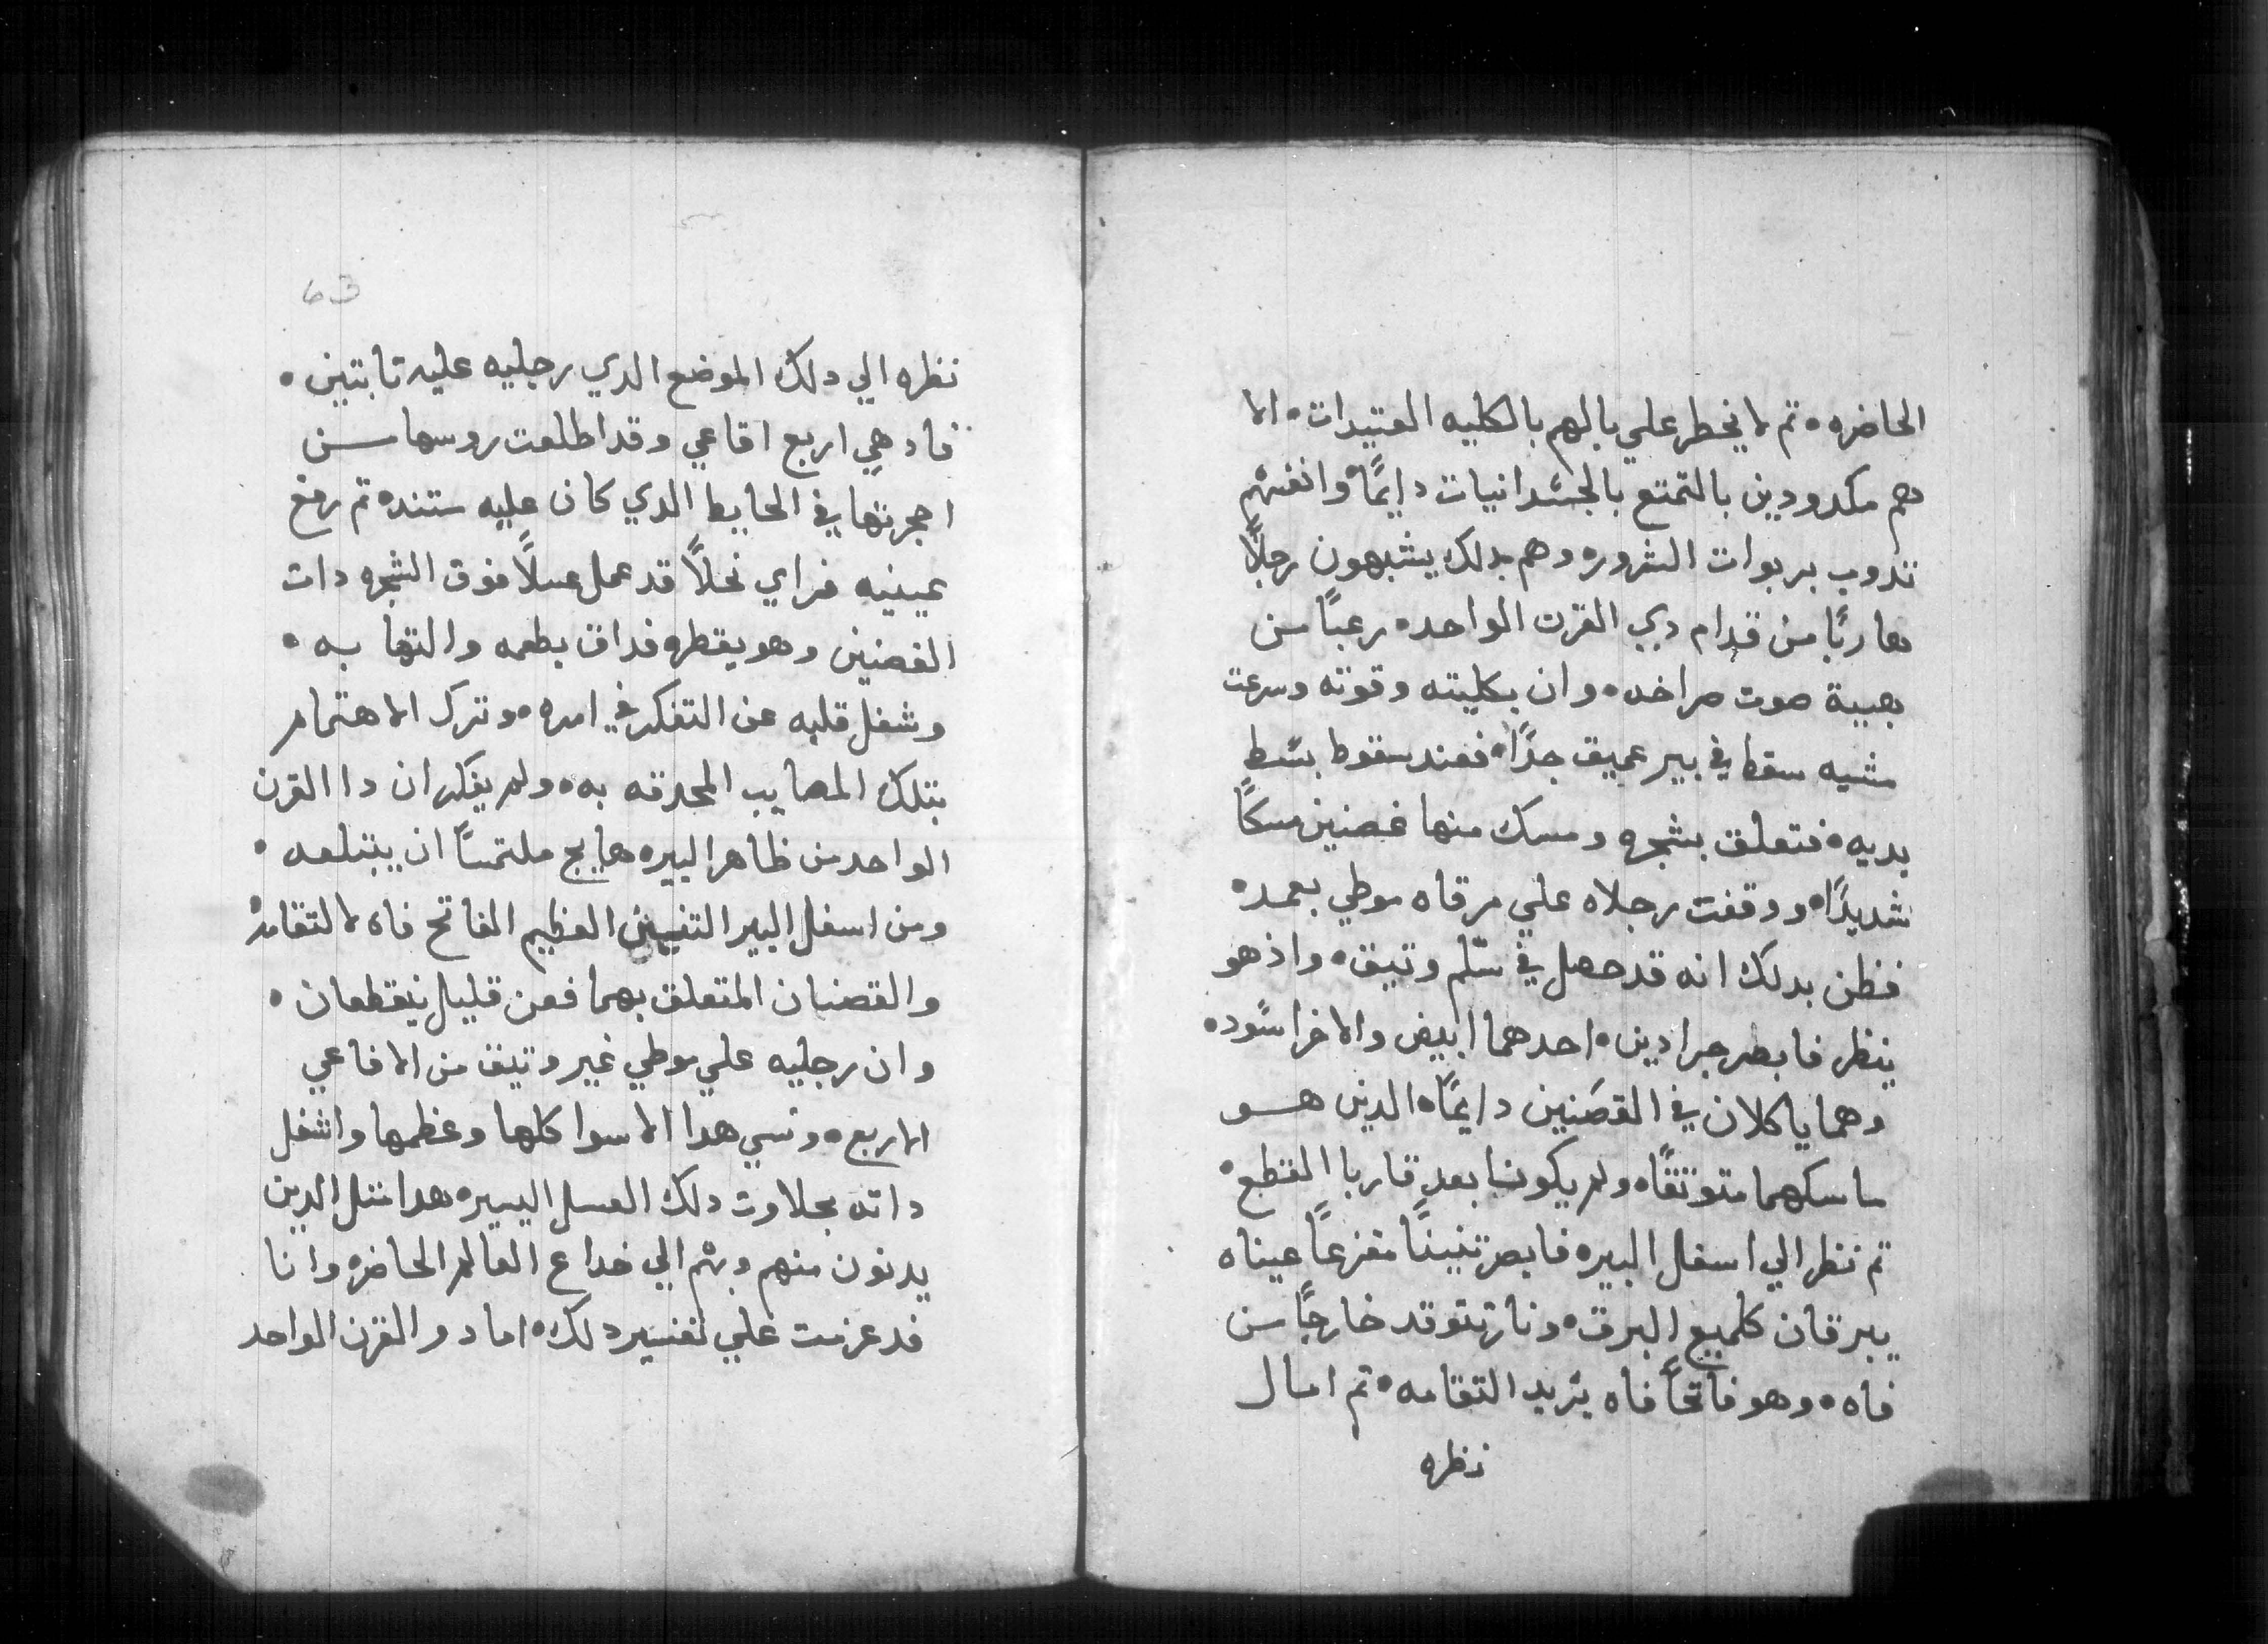 الحاضره ٠ تم لا يخطر علي بالهم بالكليه العتيدات ٠ الا
هم مكدودين بالتمتع بالجسدانيات دايمًا ٠ وانفسهم
تدوب بربوات الشروره وهم بدلك يشبهون رجلًا
هاربًا من قدام دي القرن الواحد ٠ رعبًا من
هيبة صوت صراخه ٠ وان بكليته وقوته وسرعت
مشيه سقط في بير عميق جدًا ٠ فعند سقوط بسط
يديه ٠ فتعلق بشجره ومسك منها غصنين مسكًا
شديدًا ٠ ووقفت رجلاه علي مرقاه موطي بعمد ٠
فظن بدلك انه قد حصل في سلّم وتيق ٠ واذ هو
ينظر فابصر جرادين ٠ احدهما ابيض والاخر اسود ٠
وهما ياكلان في القصنين دايمًا ٠ الدين هو
ماسكهما متوتقًا ٠ ولم يكونا بعد قاربا القطع ٠
تم نظر الي اسفل البيره فابصر تنينًا مفزعًا عيناه
يبرقان كلميع البرق ٠ ونار تتوقد خارجًا من
فاه ٠ وهو فاتحًا فاه يريد التقامه ٠ تم امال
نظره
63
نظره الي دلك الموضع الدي رجليه عليه تابتين ٠
فاد هي اربع افاعي وقد اطلعت روسها من
احجرتها في الحايط الدي كان عليه ستنده تم رفع
عينيه فراي نحلًا قد عمل عسلًا فوق الشجره دات
الغصنين وهو يقطره فداق بطعمه والتها به ٠
وشغل قلبه عن التفكر في امره ٠ وترك الاهتمام
بتلك المصايب المحدقه به ٠ ولم يفكر ان دا القرن
الواحد من ظاهر البيره هايج ملتمسًا ان يبتلعه ٠
ومن اسفل البير التنين العظيم الفاتح فاه لالتقامه
والقضبان المتعلق بهما فعن قليل ينقطعان ٠
وان رجليه علي موطي غير وتيق من الافاعي
الاربع ٠ ونسي هدا الاسوا كلها وعظمها واشغل
داته بحلاوت دلك العسل اليسيره هدا متل الدين
يدنون منهم وبهم الي خداع العالم الحاضره وانا
قد عزمت علي تفسير دلك ٠ اما دو القرن الواحد